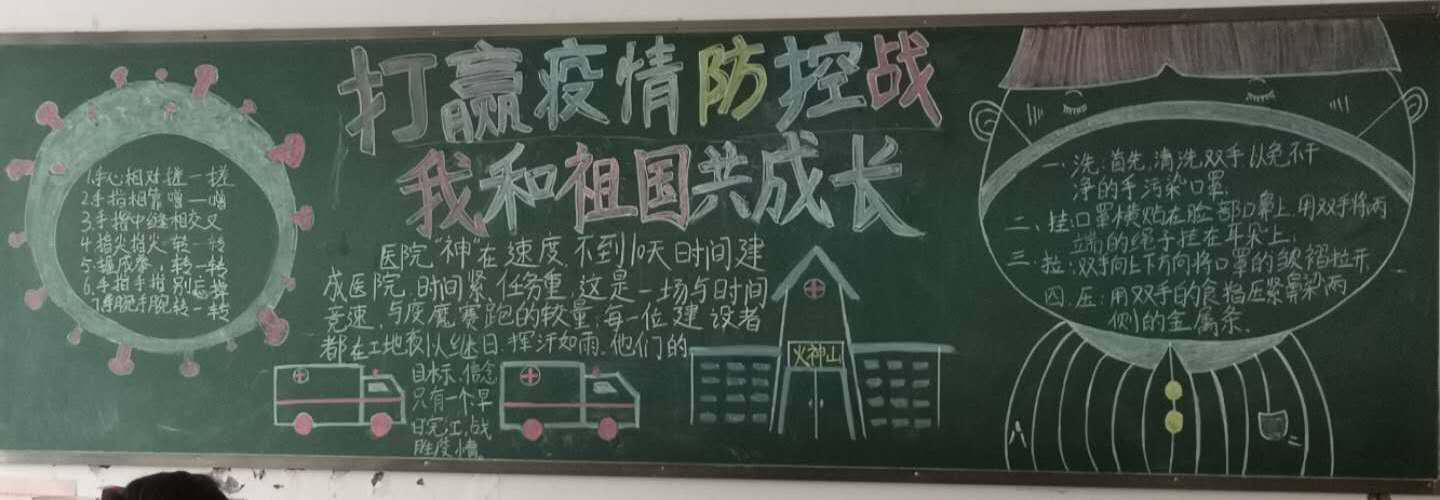 打赢疫情防控战
我和祖国共成长
1.手心相对搓一搓
2.手指相靠噌一噌
3.手指中缝相交叉
4.指尖指尖转一转
5.握成拳转一转
6.手指手指别忘掉
7.手腕手腕转一转
医院“神”在速度不到10天日时间建
成医院,时间紧,任务重,这是一场与时间
竞速,与疫魔赛跑的较量,每一位建设者
都在工地夜以继日.挥汗如雨.他们的
目标、信念
只有一个早
日完工,战
胜疫情。
火神山
一、洗:首先,清洗双手以免不干
净的手污染口罩.
二、挂:口罩横贴在脸部口鼻上.用双手将两
端的绳子挂在耳朵上.
三、拉:双手向上下方向将口罩的皱褶拉开
四、压:用双手的食指压紧鼻梁两
侧的金属条.